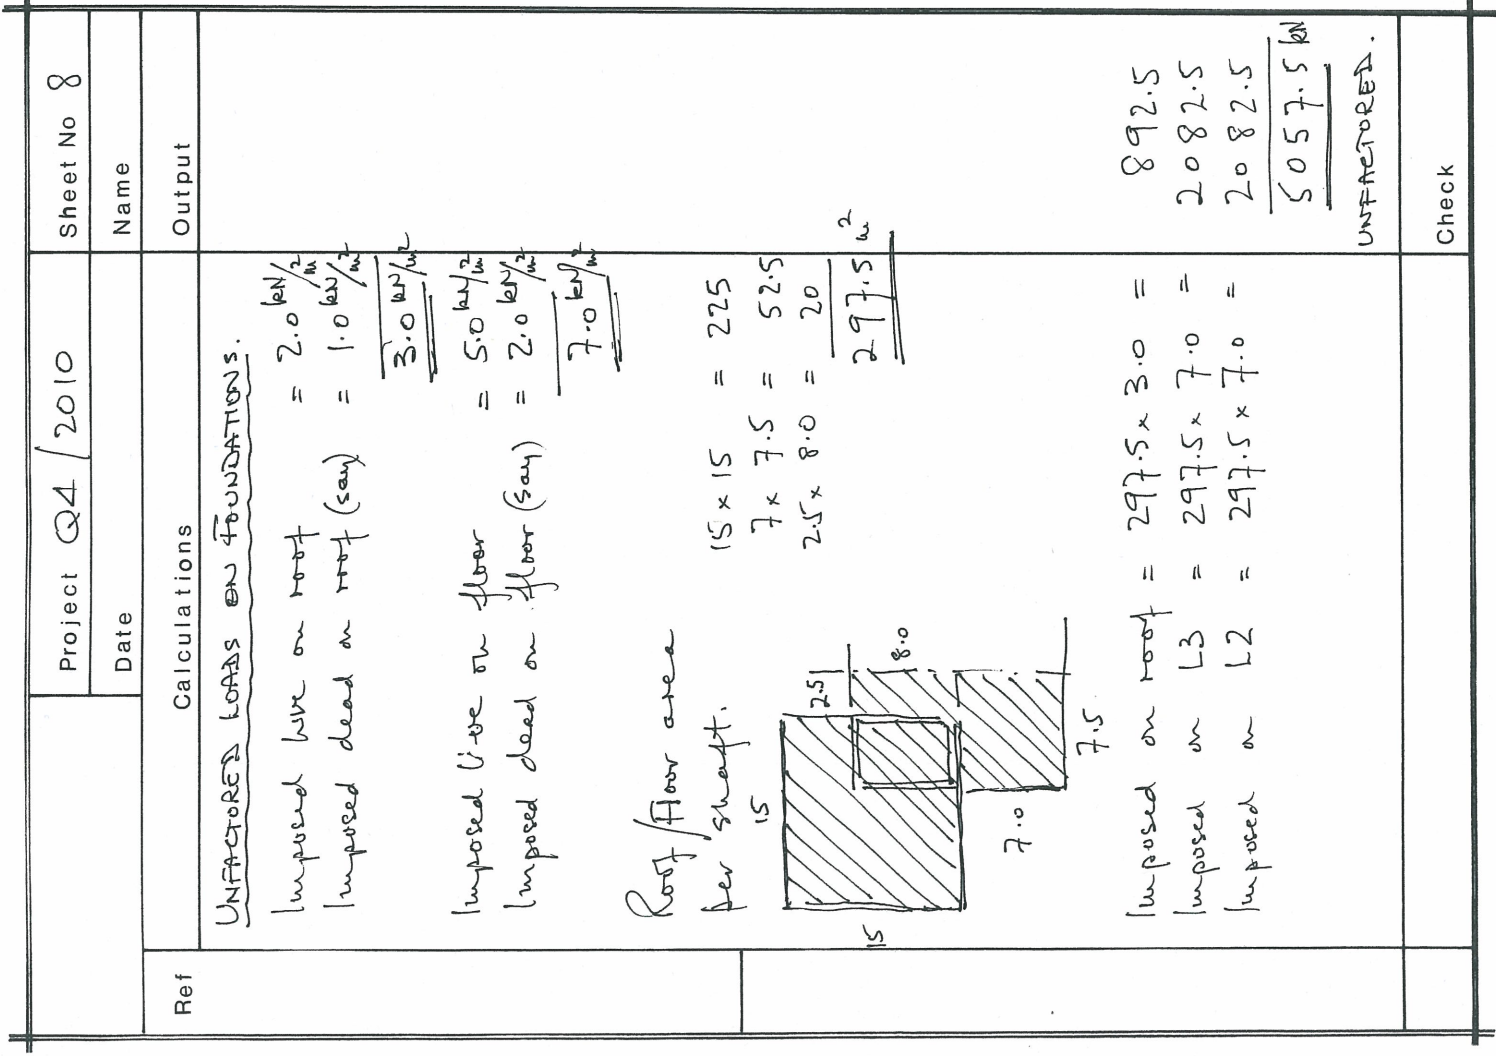 Project Q4/2010 Sheet No 8
Date Name
Ref Calculations Output
UNFACTORED LOADS ON FOUNDATIONS.
Imposed live on roof = 2.0 kN/m²
Imposed dead on roof (say) = 1.0 kN/m²
3.0 kN/m²
Imposed live on floor = 5.0 kN/m²
Imposed dead on floor (say) = 2.0 kN/m²
7.0 kN/m²
Roof/Floor area
per shaft.
15 × 15 = 225
7 × 7.5 = 52.5
2.5 × 8.0 = 20
297.5 m²
15
2.5
15
8.0
7.0
7.5
Imposed on roof = 297.5 × 3.0 = 892.5
Imposed on L3 = 297.5 × 7.0 = 2082.5
Imposed on L2 = 297.5 × 7.0 = 2082.5
5057.5 kN
UNFACTORED.
Check